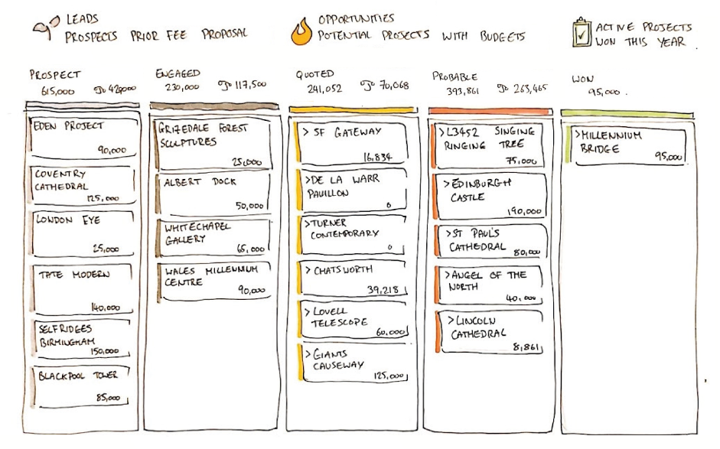 LEADS
PROSPECTS PRIOR FEE PROPOSAL
OPPORTUNITIES
POTENTIAL PROJECTS WITH BUDGETS
ACTIVE PROJECTS
WON THIS YEAR
PROSPECT
615,000
ENGAGED
230,000 117,500
QUOTED
241,052 70,068
PROBABLE
393,861 263,465
WON
95,000
EDEN PROJECT
90,000
COVENTRY
CATHEDRAL
125,000
LONDON EYE
25,000
TATE MODERN
140,000
SELFRIDGES
BIRMINGHAM
150,000
BLACKPOOL TOWER
85,000
GRIZEDALE FOREST
SCULPTURES
25,000
ALBERT DOCK
50,000
WHITECHAPEL
GALLERY
65,000
WALES MILLENNIUM
CENTRE
90,000
> SF GATEWAY
16,834
> DE LA WARR
PAVILLON
0
> TURNER
CONTEMPORARY
0
> CHATSWORTH
39,218
> LOVELL
TELESCOPE
60,000
> GIANTS
CAUSEWAY
125,000
> L3452 SINGING
RINGING TREE
75,000
> EDINBURGH
CASTLE
190,000
> ST PAUL'S
CATHEDRAL
80,000
> ANGEL OF THE
NORTH
40,000
> LINCOLN
CATHEDRAL
8,861
> MILLENNIUM
BRIDGE
95,000